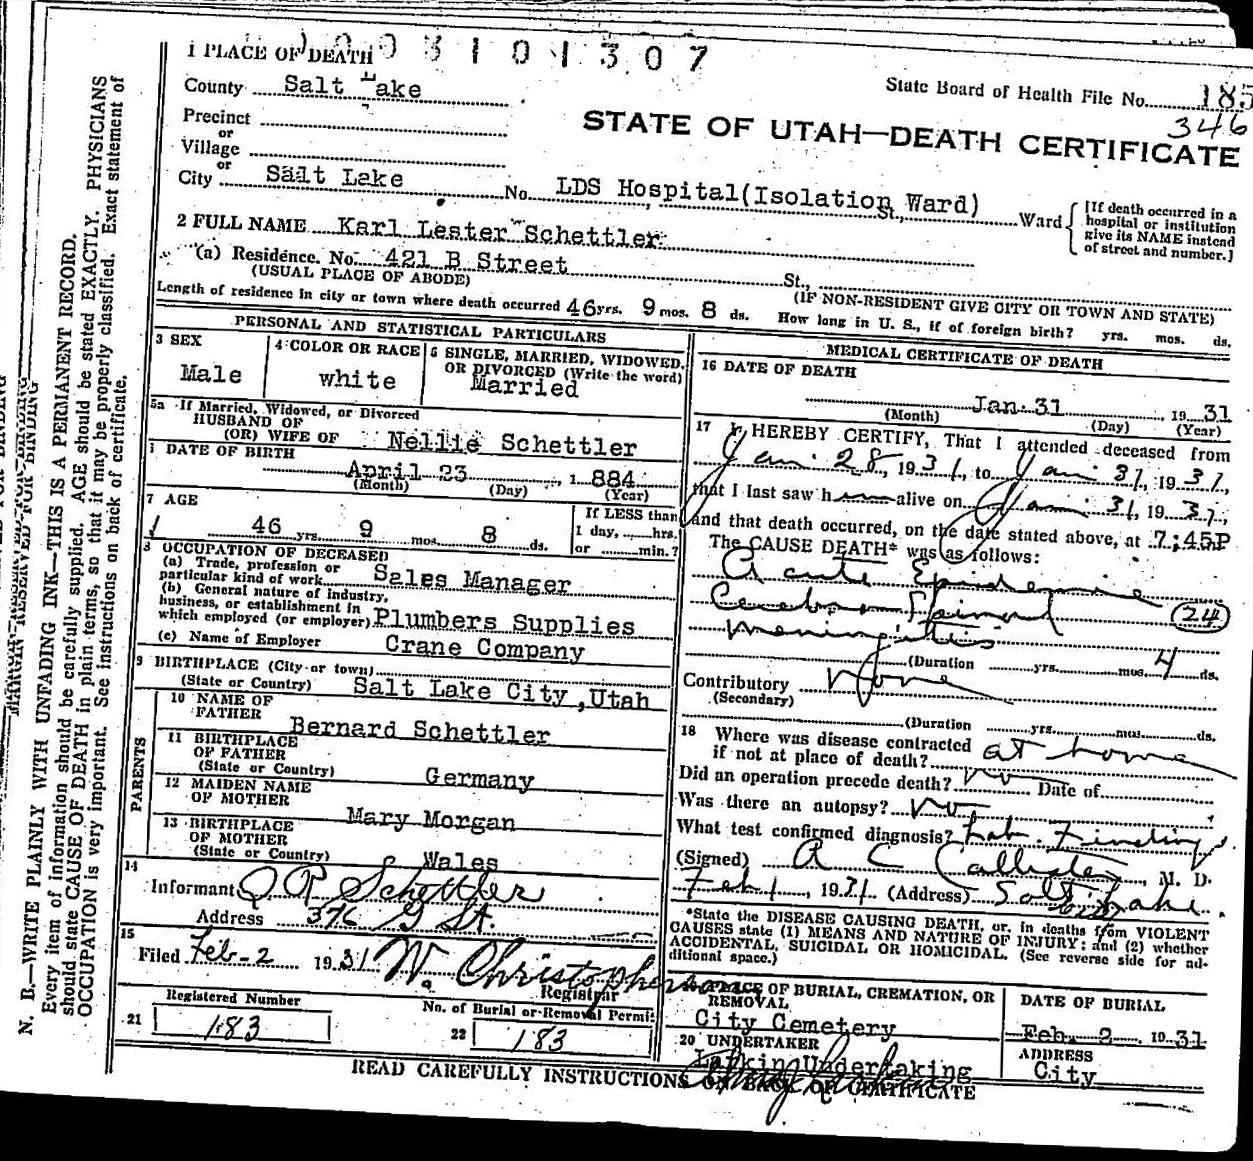 1 PLACE OF DEATH
0 0 3 1 0 1 3 0 7
County Salt Lake
State Board of Health File No. 185
346
Precinct
or
Village
or
STATE OF UTAH—DEATH CERTIFICATE
City Salt Lake No. LDS Hospital(Isolation Ward) St., Ward
[If death occurred in a hospital or institution give its NAME instead of street and number.]
2 FULL NAME Karl Lester Schettler
(a) Residence. No. 421 B Street St.,
(USUAL PLACE OF ABODE) (IF NON-RESIDENT GIVE CITY OR TOWN AND STATE)
Length of residence in city or town where death occurred 46 yrs. 9 mos. 8 ds. How long in U. S., if of foreign birth? yrs. mos. ds.
PERSONAL AND STATISTICAL PARTICULARS
3 SEX
Male
4 COLOR OR RACE
white
5 SINGLE, MARRIED, WIDOWED, OR DIVORCED (Write the word)
Married
5a If Married, Widowed, or Divorced
HUSBAND OF
(OR) WIFE OF Nellie Schettler
DATE OF BIRTH
April 23, 1884
(Month) (Day) (Year)
7 AGE
46 yrs. 9 mos. 8 ds.
If LESS than
1 day, hrs.
or min.?
8 OCCUPATION OF DECEASED
(a) Trade, profession or
particular kind of work Sales Manager
(b) General nature of industry,
business, or establishment in
which employed (or employer) Plumbers Supplies
(c) Name of Employer Crane Company
9 BIRTHPLACE (City or town)
(State or Country) Salt Lake City,Utah
PARENTS
10 NAME OF
FATHER Bernard Schettler
11 BIRTHPLACE
OF FATHER
(State or Country) Germany
12 MAIDEN NAME
OF MOTHER Mary Morgan
13 BIRTHPLACE
OF MOTHER
(State or Country) Wales
14
Informant O R Schettler
Address 376 G St.
15
Filed Feb-2 1931 W. Christopherson
Registrar
Registered Number
21 183
No. of Burial or Removal Permit
22 183
MEDICAL CERTIFICATE OF DEATH
16 DATE OF DEATH
Jan 31, 1931
(Month) (Day) (Year)
17 I HEREBY CERTIFY, That I attended deceased from
Jan. 28, 1931, to Jan. 31, 1931,
that I last saw him alive on Jan. 31, 1931,
and that death occurred, on the date stated above, at 7;45P
The CAUSE DEATH* was as follows:
Acute Epidemic
Cerebro Spinal (24)
meningitis
(Duration yrs. mos. 4 ds.
Contributory None
(Secondary)
(Duration yrs. mos. ds.
18 Where was disease contracted
if not at place of death? at home
Did an operation precede death? no Date of
Was there an autopsy? no
What test confirmed diagnosis? Lab. Findings
(Signed) A C Callister, M. D.
Feb 1, 1931 (Address) Salt Lake
*State the DISEASE CAUSING DEATH, or, in deaths from VIOLENT
CAUSES state (1) MEANS AND NATURE OF INJURY; and (2) whether
ACCIDENTAL, SUICIDAL OR HOMICIDAL. (See reverse side for ad-
ditional space.)
PLACE OF BURIAL, CREMATION, OR
REMOVAL
City Cemetery
DATE OF BURIAL
Feb. 2 1931
20 UNDERTAKER
Larkin Undertaking
ADDRESS
City
READ CAREFULLY INSTRUCTIONS ON BACK OF CERTIFICATE
MARGIN RESERVED FOR BINDING
N. B.—WRITE PLAINLY WITH UNFADING INK—THIS IS A PERMANENT RECORD.
Every item of information should be carefully supplied. AGE should be stated EXACTLY. PHYSICIANS
should state CAUSE OF DEATH in plain terms, so that it may be properly classified. Exact statement of
OCCUPATION is very important. See instructions on back of certificate.